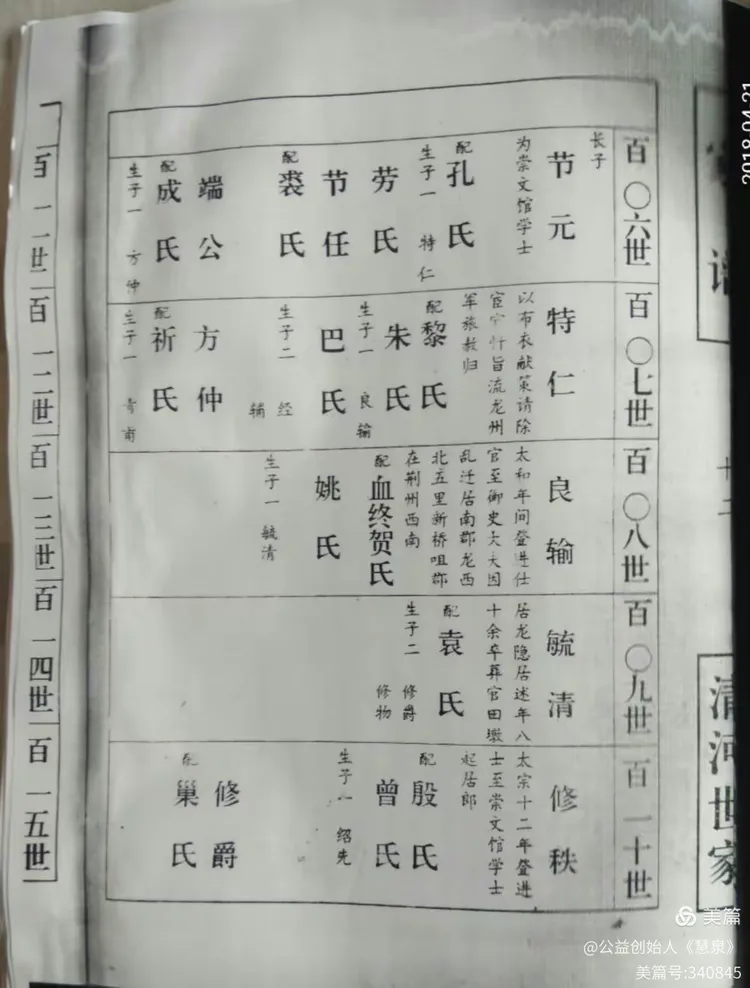 百〇六世
长子
节元
为崇文馆学士
配孔氏
生子一 特仁
劳氏
节任
配裘氏
端公
配成氏
生子一 方仲
百〇七世
特仁
以布衣献策请除
宦官忤旨流龙州
军旅赦归
配黎氏
朱氏
生子一 良输
巴氏
生子二 经
辅
方仲
配祈氏
生子一
百〇八世
良输
太和年间登进仕
官至御史大夫因
乱迁居南郡龙西
北五里新桥咀郡
在荆州西南
配血终贺氏
姚氏
生子一 毓清
百〇九世
毓清
居龙隐居述年八
十余卒葬官田墩
配袁氏
生子二 修爵
修物
百一十世
修秩
太宗十二年登进
士至崇文馆学士
起居郎
配殷氏
曾氏
生子一 绍先
修爵
配巢氏
百一一世
百一二世
百一三世
百一四世
百一五世
清河世家
2018.04.21
美篇
@公益创始人《慧泉》
美篇号:340845